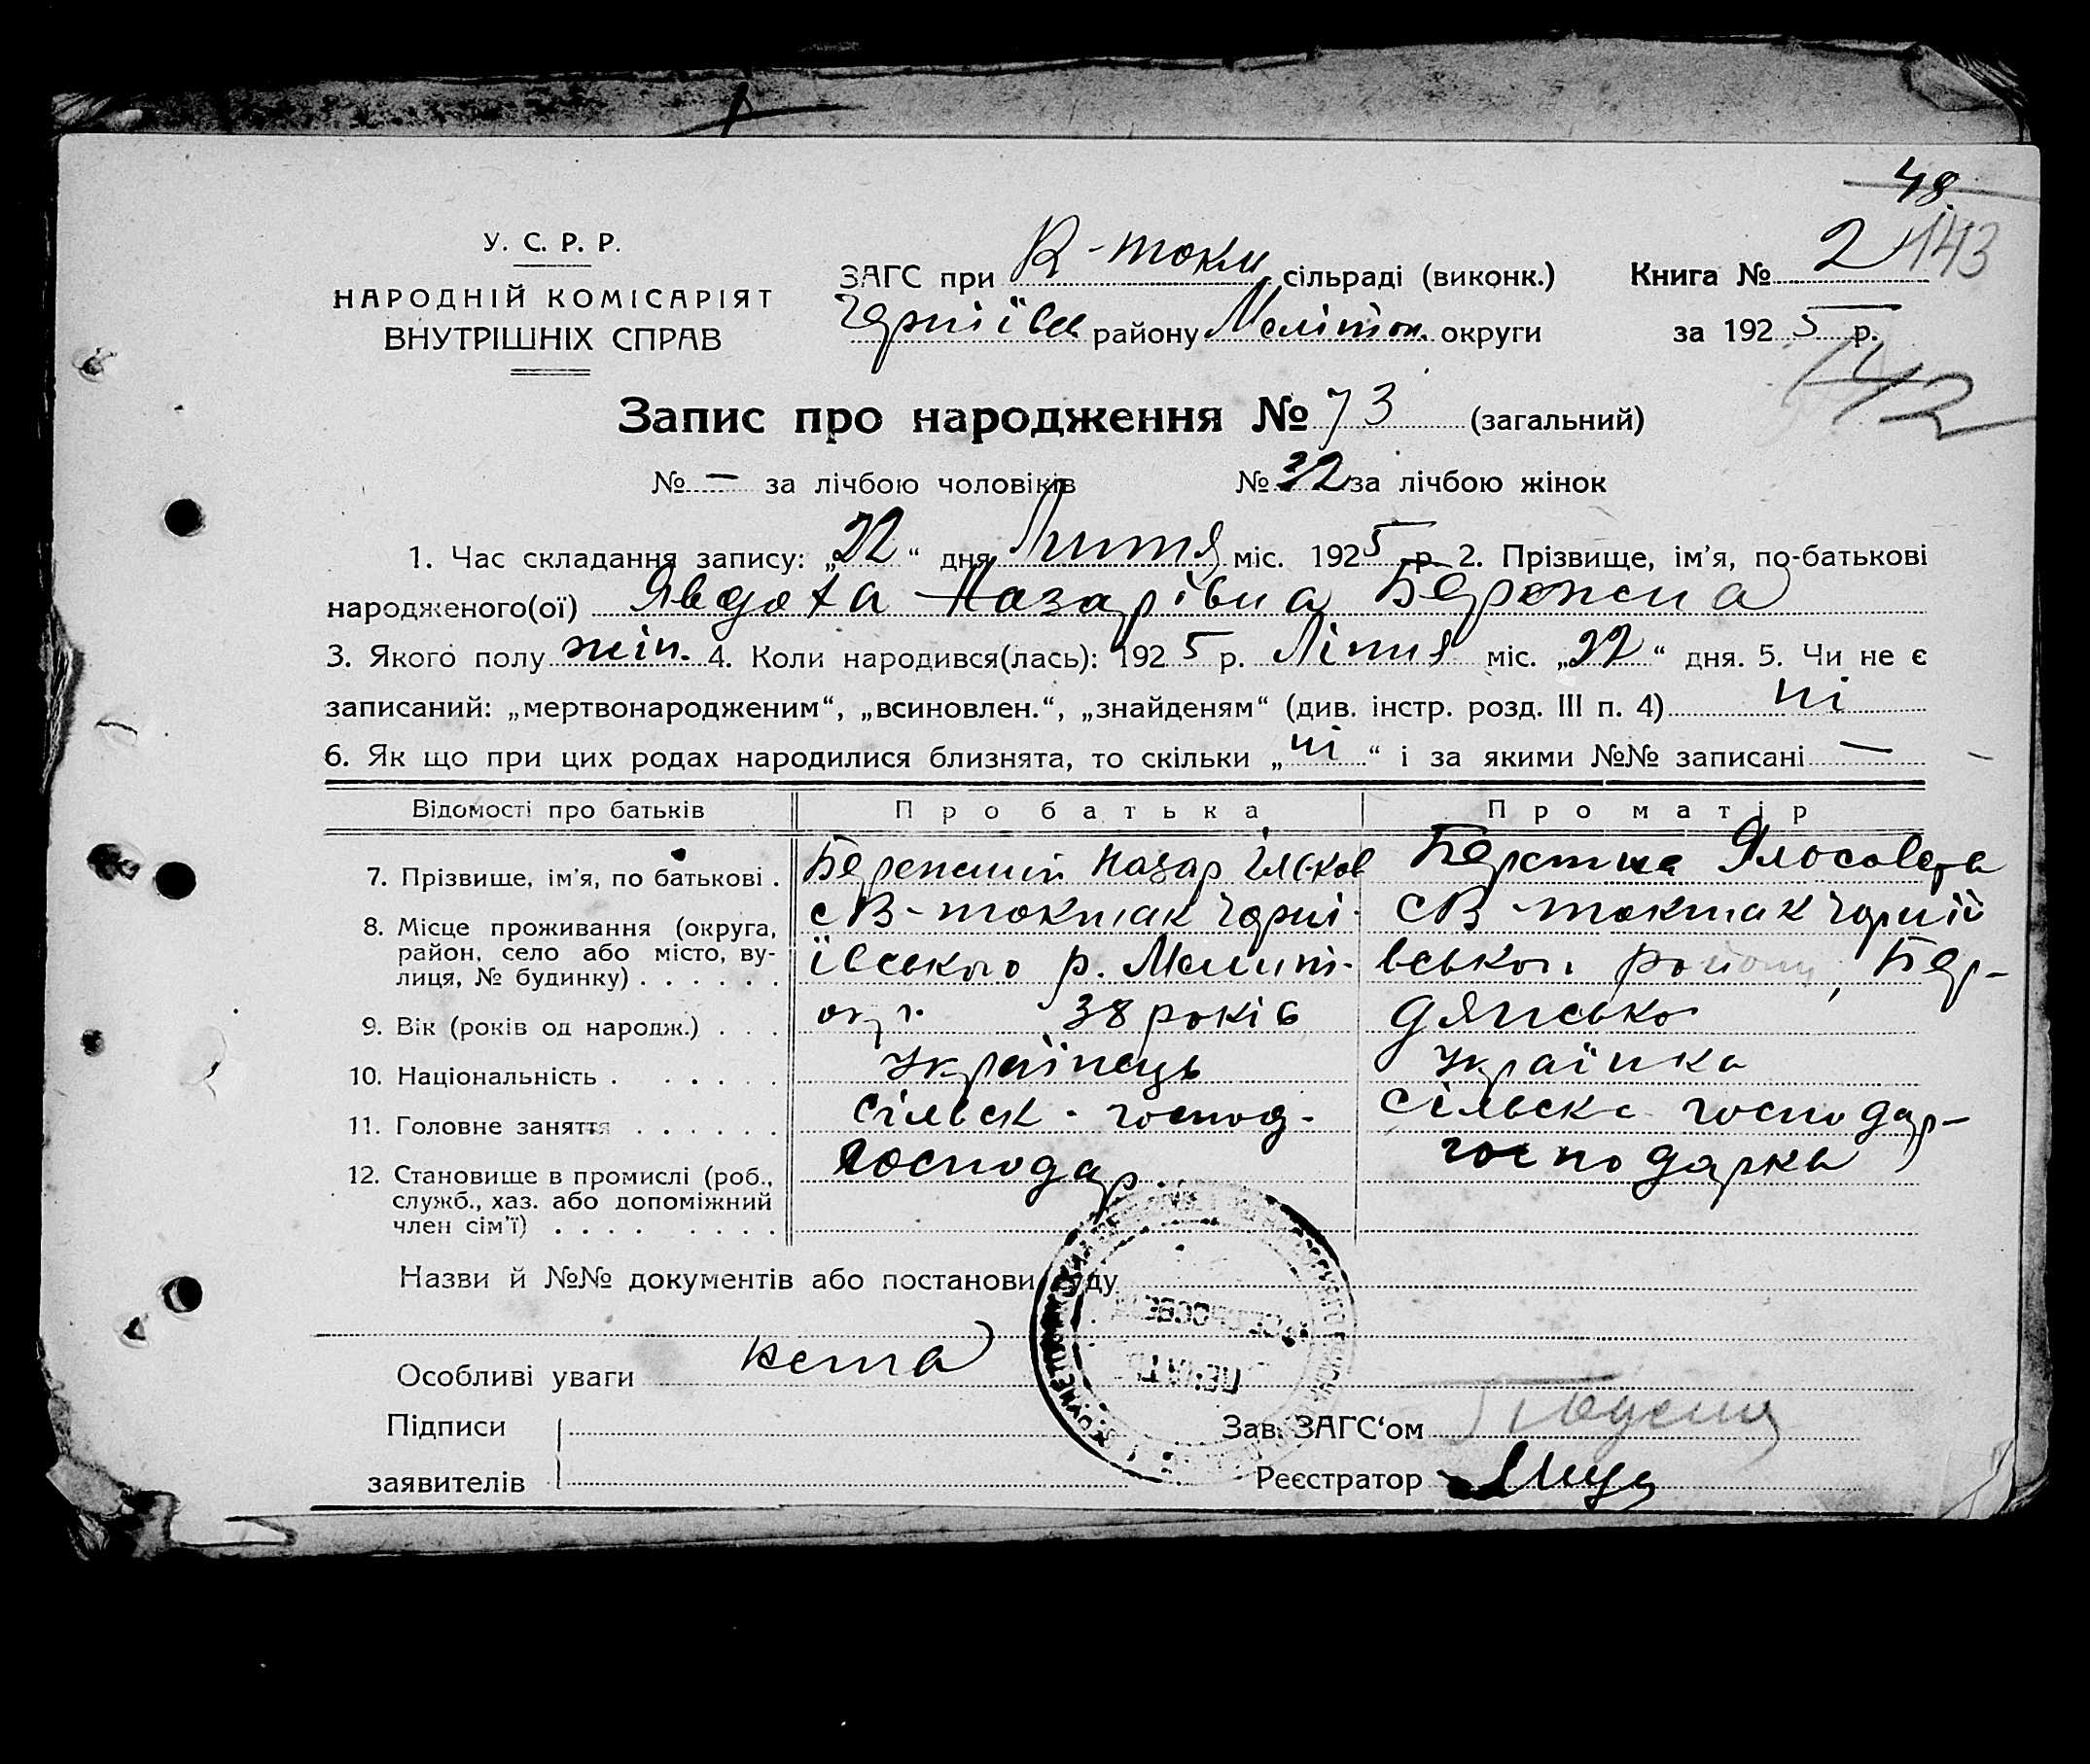 48
У. С. Р. Р.
НАРОДНІЙ КОМІСАРІЯТ
ВНУТРІШНІХ СПРАВ
ЗАГС при В-токм. сільраді (виконк.)
Черніївск району Мелітоп. округи
Книга № 2 143
за 1925 р.
142
Запис про народження № 73 (загальний)
№ — за лічбою чоловіків № 32 за лічбою жінок
1. Час складання запису: „22“ дня Липня міс. 1925 р. 2. Прізвище, ім’я, по-батькові
народженого(ої) Явдоха Назарівна Бережна
3. Якого полу жін. 4. Коли народився(лась): 1925 р. Ліпня міс. „22“ дня. 5. Чи не є
записаний: „мертвонародженим“, „всиновлен.“, „знайденям“ (див. інстр. розд. III п. 4) ні
6. Як що при цих родах народилися близнята, то скільки „ні“ і за якими №№ записані —
Відомості про батьків Про батька Про матір
7. Прізвище, ім’я, по батькові . Бережний Назар Бережна
8. Місце проживання (округа, район, село або місто, вулиця, № будинку) . . . . . . с В-токмак Черні-ївського р. Мелит. окр. с В-токмак Черніївськог району, Бердянсько
9. Вік (років од народж.) . . . 38 років
10. Національність . . . . . . Українець Українка
11. Головне заняття . . . . . . сільск-господ. сільске господар-
12. Становище в промислі (роб., служб., хаз. або допоміжний член сім’ї) . . . . . . . . господар господарка
Назви й №№ документів або постанови суду
Особливі уваги нема
Підписи
заявителів
Зав. ЗАГС‘ом
Реєстратор